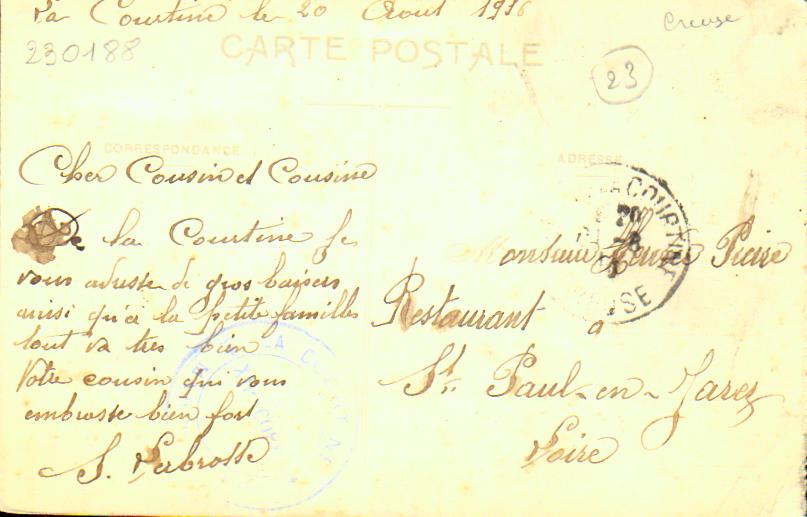 La Courtine le 20 Aout 1916
Creuse
230188
CARTE POSTALE
23
CORRESPONDANCE
ADRESSE
Cher Cousin et Cousine
De la Courtine je
vous adresse de gros baisers
ainsi qu'a la petite familles
tout va tres bien
Votre cousin qui vous
embrasse bien fort
S.
Monsieur Pierre
Restaurant a
St. Paul-en-Jarez
Loire
LA COURTINE
20 -8
CREUSE
LA COURTINE